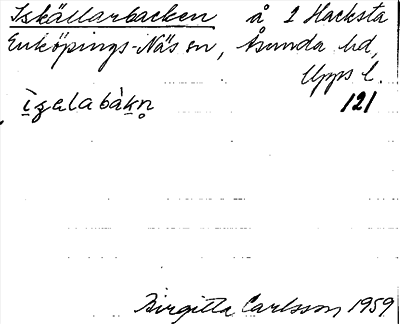 Iskällarbacken å 2 Hacksta
Enköpings-Näs sn, Åsunda hd,
Upps l.
ìʒalabàkn̥ 121
Birgitta Carlsson 1959